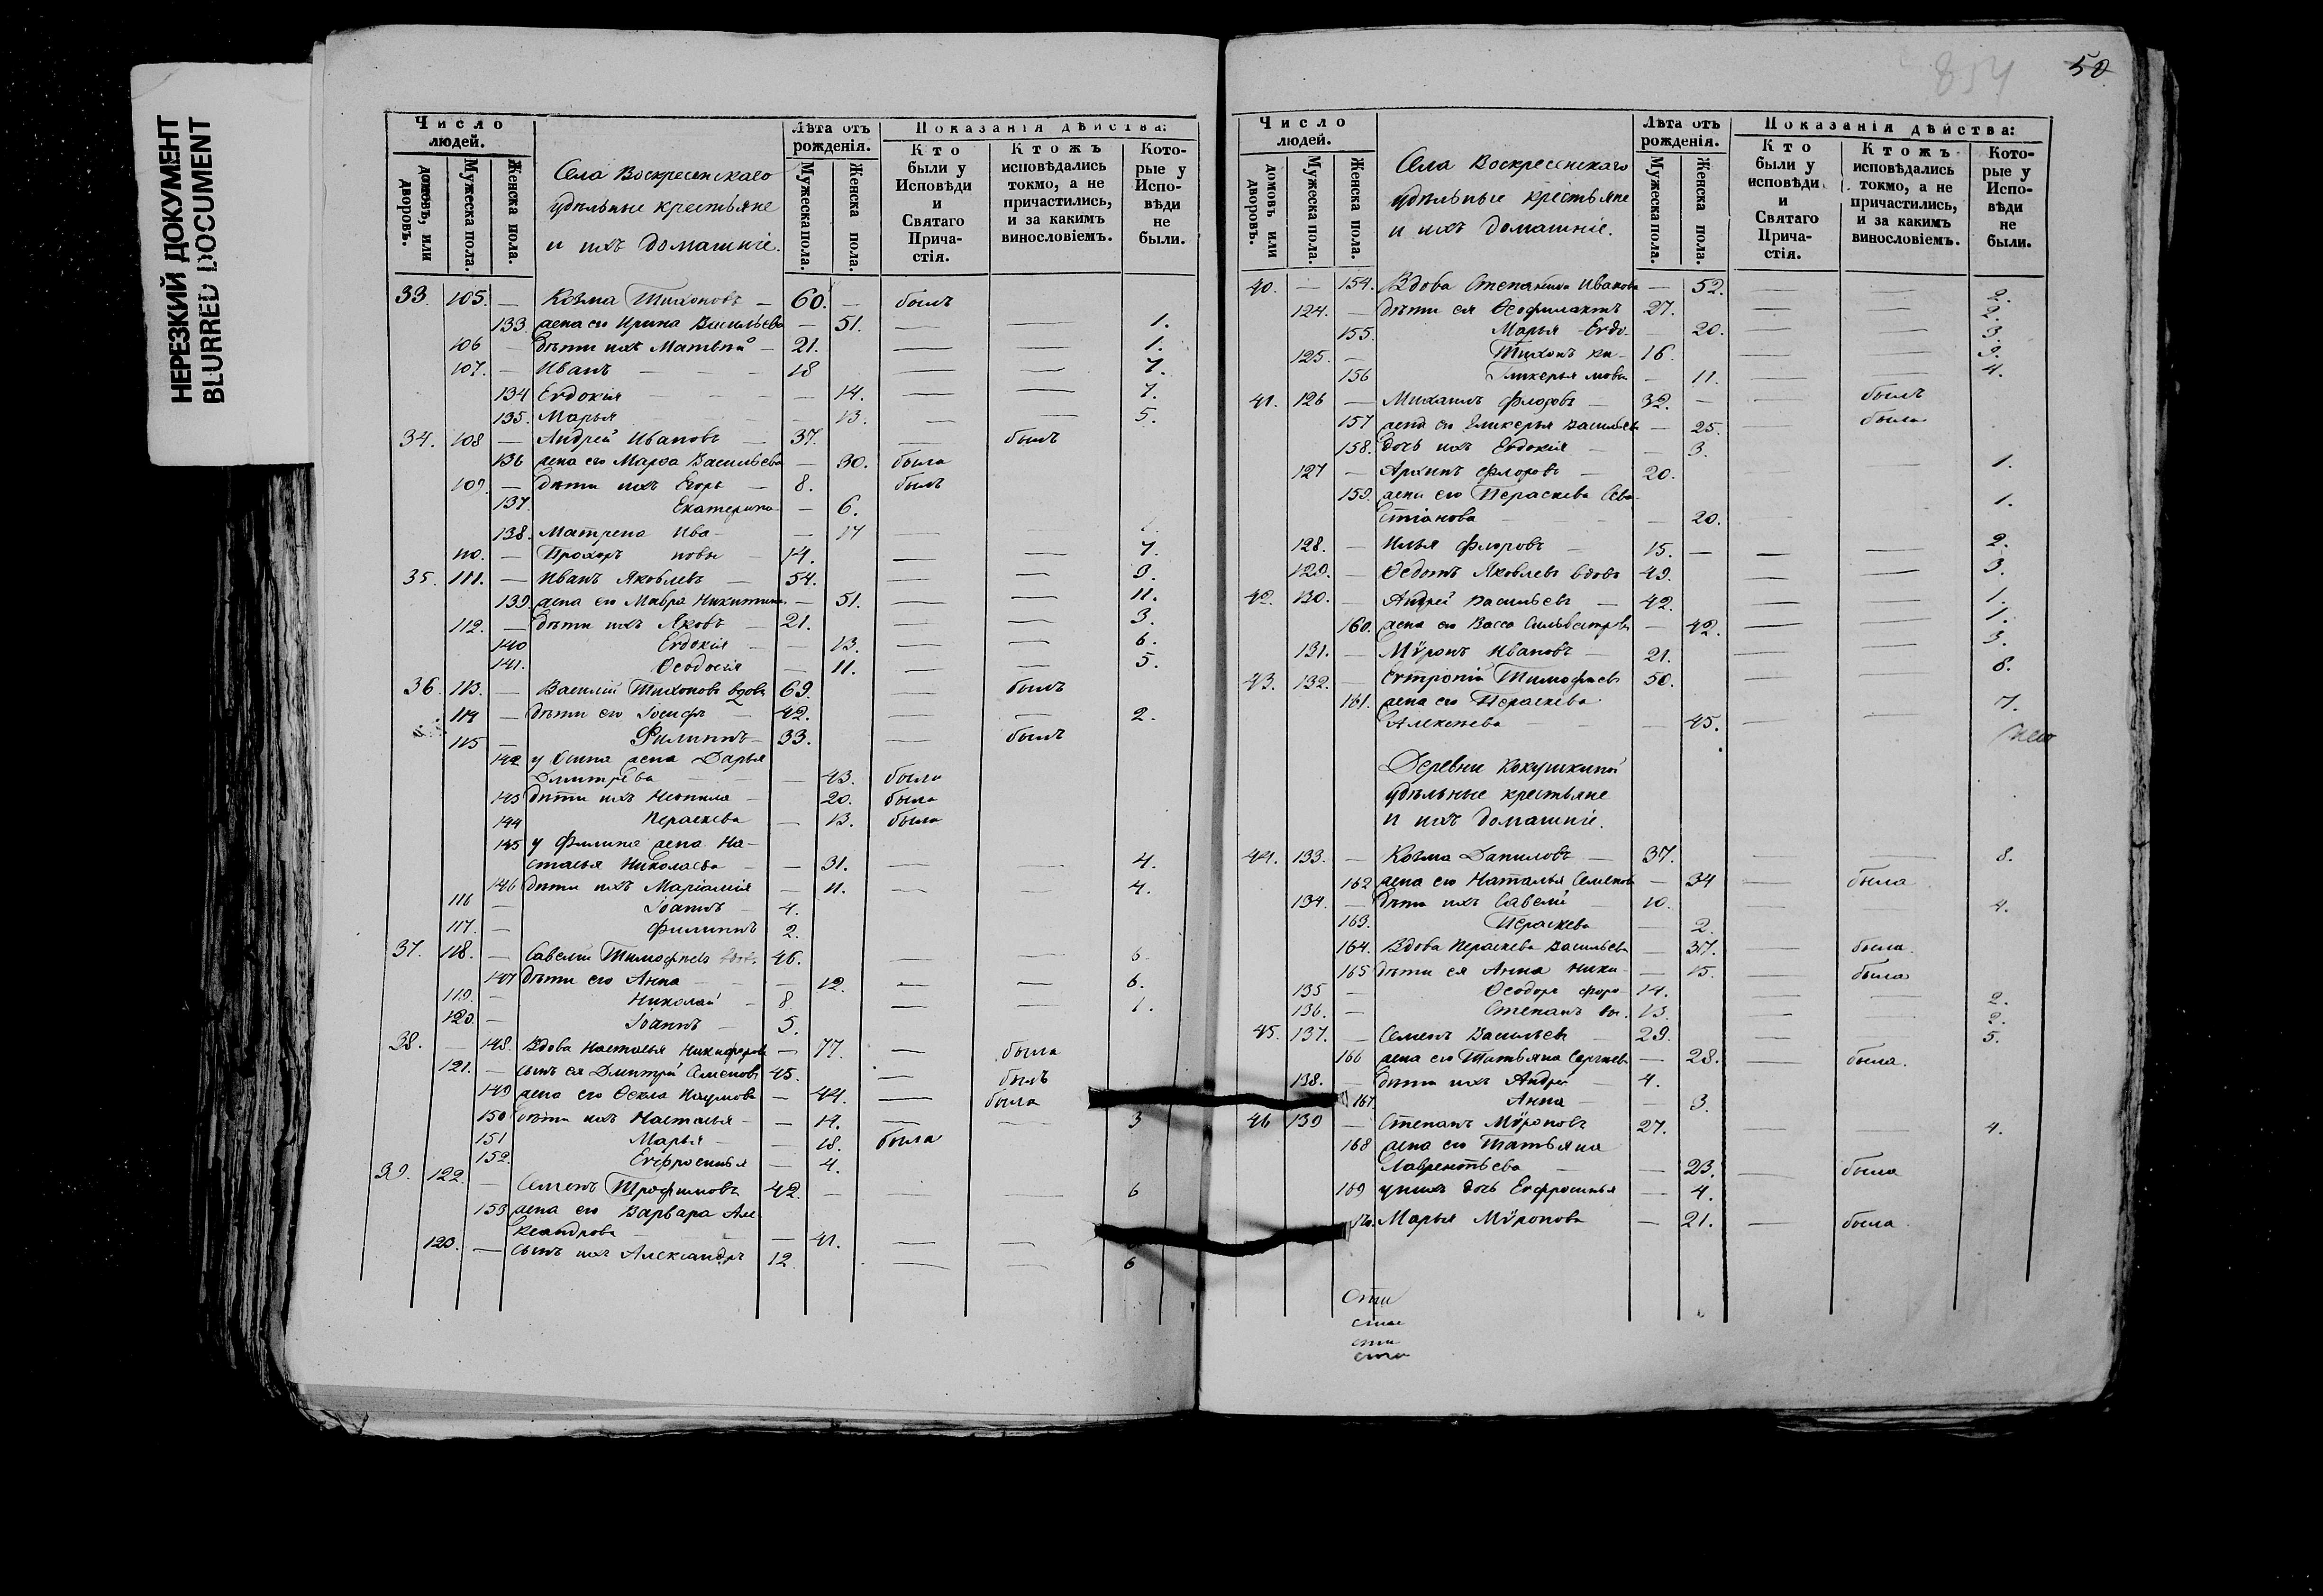 НЕРЕЗКИЙ ДОКУМЕНТ
BLURRED DOCUMENT
Число людей.
домовъ, или дворовъ.
Мужеска пола.
Женска пола.
Села Воскресенскаго
удѣльные крестьяне
и ихъ домашніе.
Лѣта отъ рожденія.
Мужеска пола.
Женска пола.
Показанія дѣйства:
Кто были у Исповѣди и Святаго Прича-стія.
Ктожъ исповѣдались токмо, а не причастились, и за какимъ винословіемъ.
Кото-рые у Испо-вѣди не были.
33. 105. — Козма Тихоновъ — 60. — былъ
133. жена его Ирина Васильева — 51. — — 1.
106 — дѣти ихъ Матвѣй — 21. — — 1.
107. — Иванъ — 18 — — 7.
134 Евдокія — 14. — — 7.
135. Марья 13. — — 5.
34. 108 — Андрей Ивановъ — 37. — былъ
136 жена его Марѳа Васильева — 30. была
109. — дѣти ихъ Егоръ — 8. былъ
137. Екатерина — 6.
138. Матрена Ива- — 17 —
110. — Прохоръ новы — 14. — — 7.
35. 111. — Иванъ Яковлевъ — 54. — — 9.
139. жена его Мавра Никитина — 51. — — 11.
112. — дѣти ихъ Яковъ — 21. — — 3.
140 Евдокія — — 13. — — 6.
141. Ѳеодосія — 11. — — 5.
36. 113. — Василій Тихоновъ вдовъ 69. — былъ
114 — дѣти его Іосифъ — 42. — — 2.
115 — Филиппъ — 33. — былъ
142 у Осипа жена Дарья
Дмитрева — 43. была
143 дѣти ихъ Неонила — 20. была
144 Параскева — 13. была
145 у Филипа жена На-
сталья Николаева — — 31. — — 4.
146 дѣти ихъ Маріамія — 11. — — 4.
116 — Іоаннъ — 4.
117. — Филиппъ 2.
37. 118. — Савелій Тимофѣевъ вдов. 46. — — 6.
147 дѣти его Анна — — 12. — — 6.
119. — Николай — 8 — — 1.
120. — Іоаннъ — 5.
38. — 148. Вдова Насталья Никифорова — 77. — была
121. — сынъ ея Дмитрій Семеновъ 45. — былъ
149 жена его Ѳекла Наумова — 44. — была
150 дѣти ихъ Насталья — — 14. — — 3
151 Марья — — 18. была
152. Евфросинья — 4.
39. 122. — Семенъ Трофимовъ 42. — — — 6
153 жена его Варвара Але-
ксандрова — — 41. — —
123. — сынъ ихъ Александръ 12. — — 6
854
50
Число людей.
домовъ или дворовъ.
Мужеска пола.
Женска пола.
Села Воскресенскаго
удѣльные крестьяне
и ихъ домашніе.
Лѣта отъ рожденія.
Мужеска пола.
Женска пола.
Показанія дѣйства:
Кто были у исповѣди и Святаго Прича-стія.
Ктожъ исповѣдались токмо, а не причастились, и за какимъ винословіемъ.
Кото-рые у Испо-вѣди не были.
40. — 154. Вдова Степанида Иванова — 52. — — 2.
124. — дѣти ея Ѳеофилактъ 27. — — 2.
155. Марья Евдо- — 20. — — 3.
125. — Тихонъ ки- 16. — — 3.
156 Гликерья мовы — 11. — — 4.
41. 126 — Михаилъ Флоровъ — 32. — былъ
157 жена его Гликерья Васильева — 25. — была
158. дочь ихъ Евдокія — — 3.
127 — Архипъ Флоровъ — 20. — — 1.
159. жена его Параскева Сева-
стіанова — — 20. — — 1.
128. — Илья Флоровъ — 15. — — — 2.
129. — Ѳедотъ Яковлевъ вдовъ 49. — — 3.
42. 130. — Андрей Васильевъ — 42. — — 1.
160. жена его Васса Сильвестрова — 42. — — 1.
131. — Мѵронъ Ивановъ — 21. — — 3.
43. 132. — Евтропій Тимофѣевъ 50. — — 6.
161. жена его Параскева
Алексѣева — — 45. — — 7.
Деревни Кокушкиной
удѣльные крестьяне
и ихъ домашніе.
44. 133. — Козма Даниловъ — 37. — — 8.
162 жена его Наталья Семенова — 34 — была
134. — дѣти ихъ Савелій — 10. — — 4.
163. Параскева — 2.
164. Вдова Параскева Васильева — 37. — была.
165 дѣти ея Анна Ники- — 15. — была
135 — Ѳеодоръ форо- 14. — — 2.
136. — Степанъ вы. 13. — — 2.
45. 137. — Семенъ Васильевъ — 29. — — 5.
166 жена его Татьяна Сергѣева — 28. — была.
138. — дѣти ихъ Андрей — 4.
167. Анна — — 3.
46 139 — Степанъ Мѵроновъ 27. — — 4.
168 жена его Татьяна
Лаврентьева — — 23. — была
169 у нихъ дочь Евфросинья — 4.
170. Марья Мѵронова — 21. — была